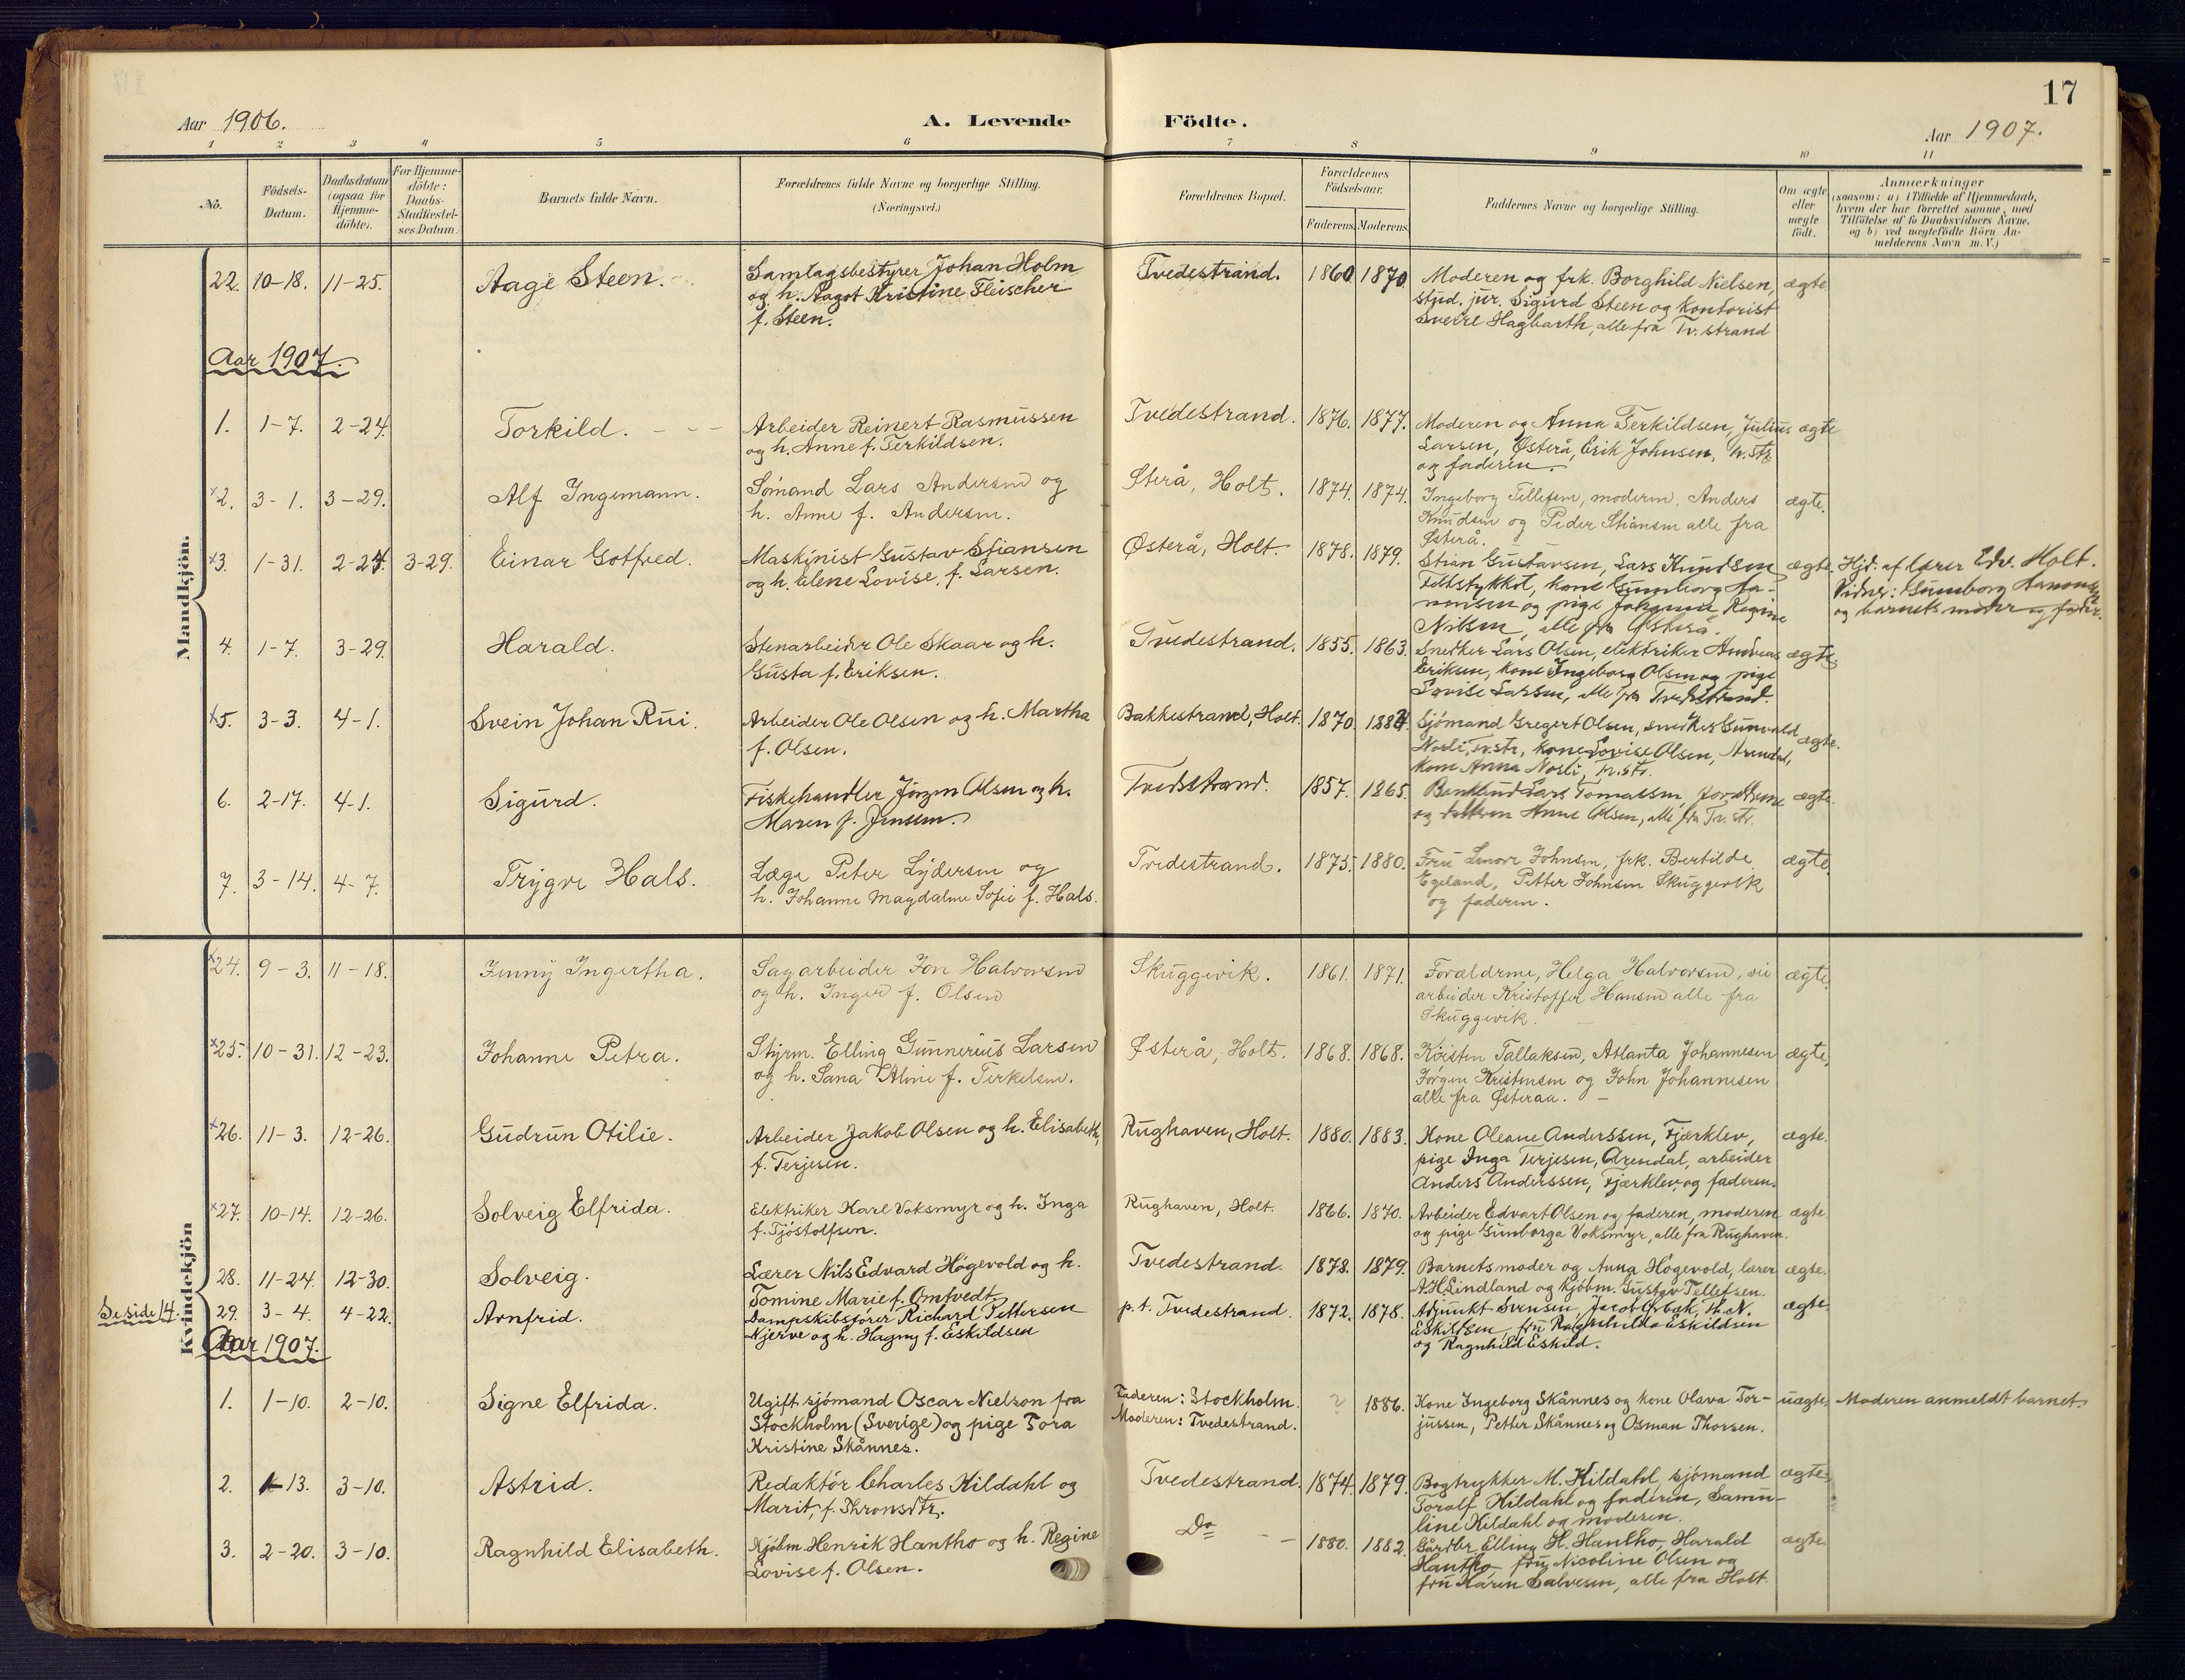 17
Aar 1906. A. Levende Födte. Aar 1907.
1 2 3 4 5 6 7 8 9 10 11
No.
Födsels-Datum.
Daabsdatum (ogsaa for Hjemme-döbte).
For Hjemme-döbte: Daabs-Stadfæstel-ses Datum.
Barnets fulde Navn.
Forældrenes fulde Navne og borgerlige Stilling. (Næringsvei.)
Forældrenes Bopæl.
Forældrenes Födselsaar.
Faderens. Moderens.
Faddernes Navne og borgerlige Stilling.
Om ægte eller uægte født.
Anmærkninger
(saasom: a) i Tilfælde af Hjemmedaab,
hvem der har forrettet samme, med
Tilföielse af to Daabsvidners Navne,
og b) ved uægtefödte Börn An-
melderens Navn m. V.)
Mandkjön.
22. 10-18. 11-25. Aage Steen. Samlagsbestyrer Johan Holm
og h. Aagot Kristine Fleischer
f. Steen.
Tvedestrand. 1860. 1870. Moderen og frk. Borghild Nielsen,
stud. jur. Sigurd Steen og kontorist
Sverre Hagbarth, alle fra Tv.strand
ægte.
Aar 1907.
1. 1-7. 2-24. Torkild. Arbeider Reinert Rasmussen
og h. Anne f. Terkildsen.
Tvedestrand. 1876. 1877. Moderen og Anna Terkildsen, Julius
Larsen, Østerå, Erik Johnsen, Tv.str.
og faderen.
ægte
x2. 3-1. 3-29. Alf Ingemann. Sömand Lars Andersen og
h. Anne f. Andersen.
Østerå, Holt. 1874. 1874. Ingeborg Tellefsen, moderen, Anders
Knudsen og Peder Stiansen alle fra
Østerå.
ægte.
x3. 1-31. 2-24. 3-29. Einar Gotfred. Maskinist Gustav Stiansen
og h. Elene Lovise, f. Larsen.
Østerå, Holt. 1878. 1879. Stian Gustavsen, Lars Knudsen
kone Gunborg Ha-
nonsen og pige Johanne Regine
Nilsen, alle fra Østerå.
ægte. Hjd. af lærer Edv. Holt.
Vidner: Gunborg Aanonsen
og barnets moder og fader.
4. 1-7. 3-29. Harald. Stenarbeider Ole Skaar og h.
Gusta f. Eriksen.
Tvedestrand. 1855. 1863. Snedker Lars Olsen, elektriker Andreas
Eriksen, kone Ingeborg Olsen og pige
Lovise Larsen, alle fra Tvedestrand.
ægte.
x5. 3-3. 4-1. Svein Johan Rui. Arbeider Ole Olsen og h. Martha
f. Olsen.
Bakkestrand, Holt. 1870. 1884. Sjömand Gregert Olsen, snedker Gunvald
Nosli, Tv.str., kone Lovise Olsen, Arendal,
kone Anna Nosli, Tv.str.
ægte.
6. 2-17. 4-1. Sigurd. Fiskehandler Jörgen Olsen og h.
Maren f. Jensen.
Tvedestrand. 1857. 1865. Lars Tomassen, forældrene
og Anne Olsen, alle fra Tv.str.
ægte.
7. 3-14. 4-7. Trygve Hals. Læge Peter Lydersen og
h. Johanne Magdalene Sofie f. Hals.
Tvedestrand. 1875. 1880. Fru Lenore Johnsen, frk. Bertilde
Egeland, Petter Johnsen Skuggevik
og faderen.
ægte.
Kvindekjön
x24. 9-3. 11-18. Jenny Ingertha. Sagarbeider Jon Halvorsen
og h. Inger f. Olsen
Skuggevik. 1861. 1871. Forældrene, Helga Halvorsen, vei
arbeider Kristoffer Hansen alle fra
Skuggevik.
ægte.
x25. 10-31. 12-23. Johanne Petra. Styrm. Elling Gunnerius Larsen
og h. Sana Aline f. Terkelsen.
Østerå, Holt. 1868. 1868. Kristen Tallaksen, Atlanta Johannesen
Jörgen Kristensen og John Johannesen
alle fra Østeraa.
ægte.
x26. 11-3. 12-26. Gudrun Otilie. Arbeider Jakob Olsen og h. Elisabeth,
f. Terjesen.
Rughaven, Holt. 1880. 1883. Kone Oleane Anderssen, Fjærklev,
pige Inga Terjesen, Arendal, arbeider
Anders Anderssen, Fjærklev, og faderen.
ægte.
x27. 10-14. 12-26. Solveig Elfrida. Elektriker Karl Voksmyr og h. Inga
f. Tjöstolfsen.
Rughaven, Holt. 1866. 1870. Arbeider Edvart Olsen og faderen, moderen
og pige Gunborga Voksmyr, alle fra Rughaven.
ægte.
28. 11-24. 12-30. Solveig. Lærer Nils Edvard Högevold og h.
Tomine Marie f. Omtvedt.
Tvedestrand. 1878. 1879. Barnets moder og Anna Högevold, lærer
A.H. Lindland og kjöbm. Gustav Tellefsen.
ægte.
Se side 14. 29. 3-4. 4-22. Arnfrid. Dampskibsförer Richard Pettersen
Kjerve og h. Hagny f. Eskildsen
p.t. Tvedestrand. 1872. 1878. Adjunkt Svensen, Jacob Ørbæk, Th. N.
Eskildsen, fru Ragnhilda Eskildsen
og Ragnhild Eskild.
ægte.
Aar 1907.
1. 1-10. 2-10. Signe Elfrida. Ugift sjömand Oscar Nielson fra
Stockholm (Sverige) og pige Tora
Kristine Skånnes.
Faderen: Stockholm.
Moderen: Tvedestrand.
? 1886. Kone Ingeborg Skånnes og kone Olava Tor-
jussen, Petter Skånnes og Osman Thorsen.
uægte. Moderen anmeldt barnet
2. 1-13. 3-10. Astrid. Redaktör Charles Kildahl og
Marit, f. Thronsdtr.
Tvedestrand. 1874. 1879. Bogtrykker M. Kildahl, sjömand
Toralf Kildahl og faderen, Samu-
line Kildahl og moderen.
ægte.
3. 2-20. 3-10. Ragnhild Elisabeth. Kjöbm. Henrik Hantho og h. Regine
Lovise f. Olsen.
Do 1880. 1882. Gårdbr. Elling H. Hantho, Harald
Hantho, fru Nicoline Olsen og
fru Karen Salvesen, alle fra Holt.
ægte.